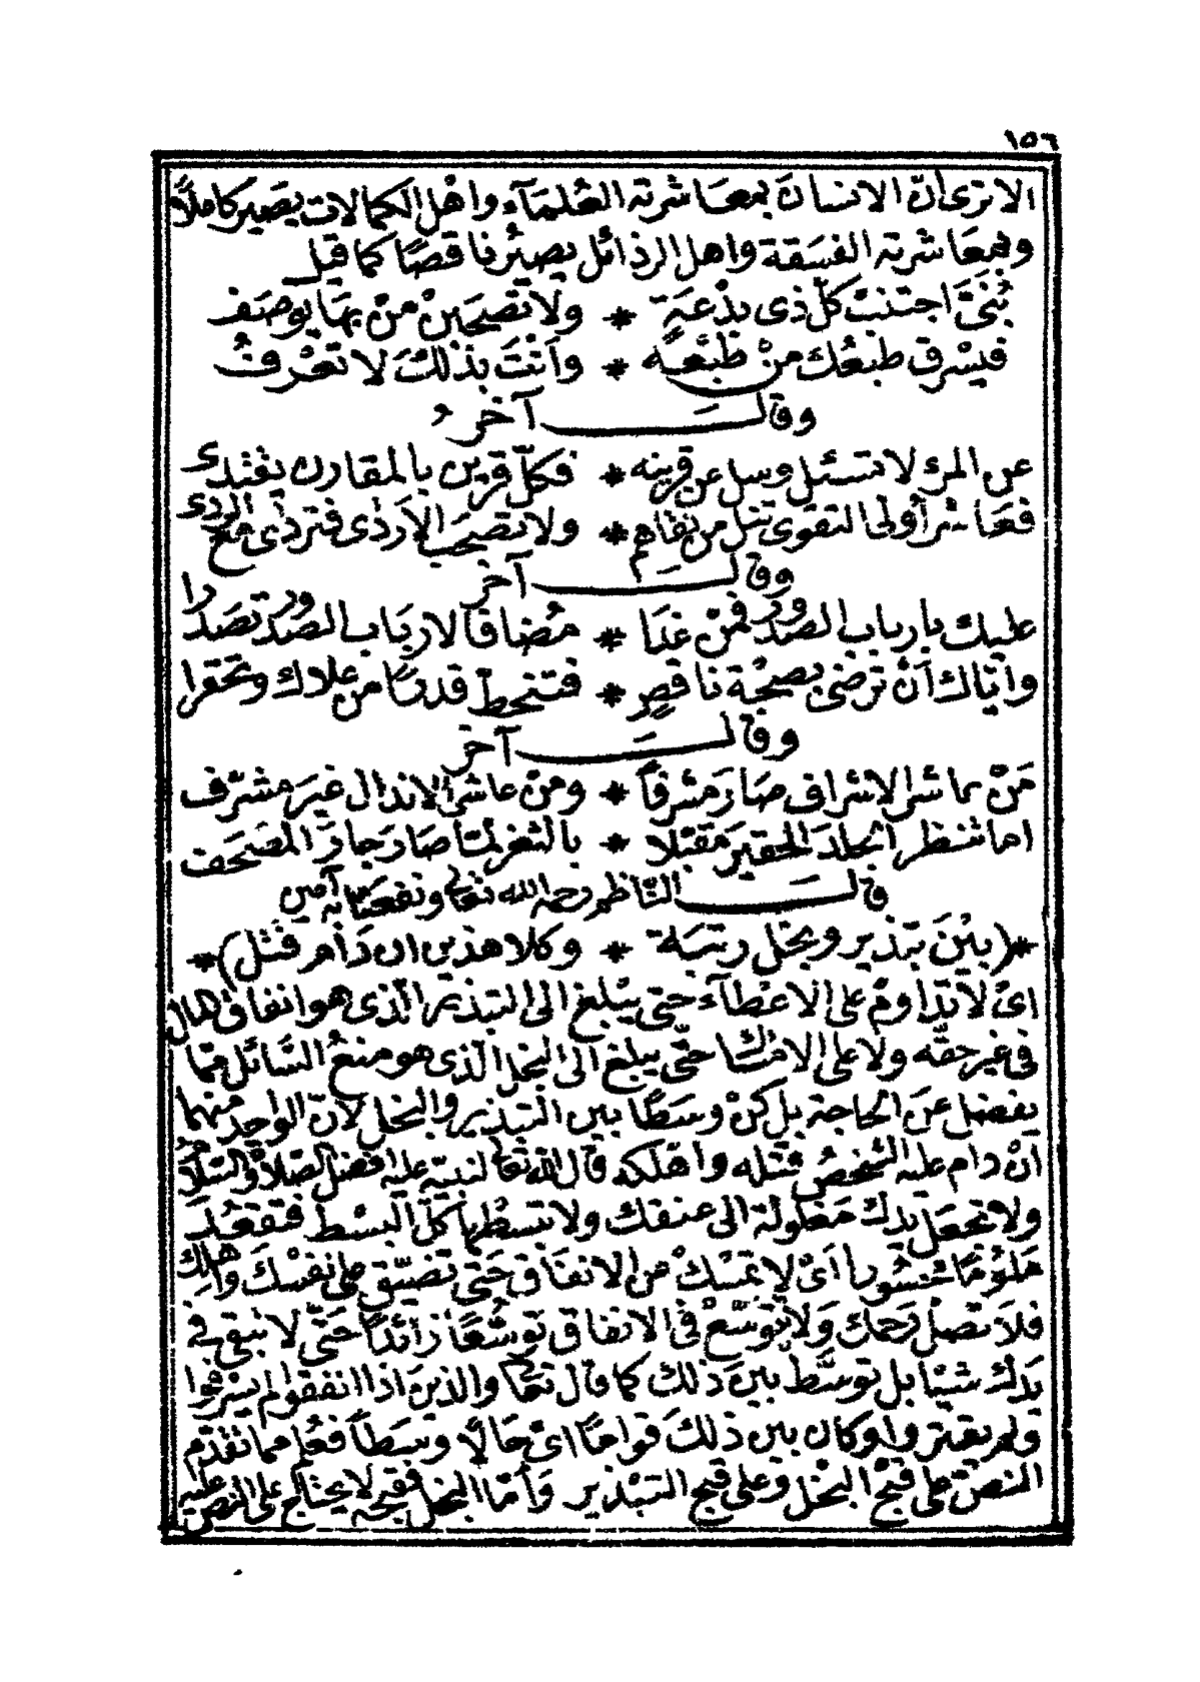 ١٥٦
الا ترى ان الانسان بمعاشرته العُلمَآء واهْل الكمالات يصَير كاملاً
وبمعَاشرته الفسَقة واهل الرذائل يصيْر ناقصًا كما قيل
بُنَيَّ اجتنبْ كلّ ذى بدْعَةٍ * ولا تصْحَبنْ منْ بهَا يوصَف
فيسْرق طبعُك منْ طبْعه * وأنتَ بذلك لا تعْرفُ
وقالَ آخرُ
عن المرء لا تسئل وسل عن قرينه * فكلّ قرين بالمقارن يقتدى
فعَاشر أولى التقوى تنل من تقاهم * ولا تصْحَب الأرذى فتردى مع الردى
وقالَ آخر
عليك بارباب الصدور فمنْ غدَا * مُضافا لارباب الصدور تصَدرا
وايّاك أنْ ترضى بصحْبة ناقصٍ * فتنحط قدرًا من علاك وتحقرا
وقالَ آخر
مَنْ عاشر الاشراف صَارَ مشرفاً * ومنْ عاشر الانذال غيرَ مشرّف
اما تنظر الجلدَ الحقيرَ مقبّلا * بالثغر لمّا صَارَ جارَ المصْحَف
قالَ النّاظم رحمه الله تعالى ونفعَنا به آمين
*(بيْنَ تبْذير وبخْل رتبَة * وكلا هذين ان دَام قتْل)*
اىْ لا تدَاومْ على الاعْطآء حتى يبْلغ الى التبذير الّذى هو انفاق المال
فى غير حقّه ولا على الامْسَاك حتّى يبلغ الى البخل الّذى هو منعُ السَّائل ممّا
يفضل عَن الحَاجة بل كنْ وسَطًا بين التبذير والبخل لأنّ الواحد منهما
انْ دام عليه الشخصُ قتْله واهْلكه قال الله تعالى لنبيّه عليه افضل الصّلاة والسّلام
ولا تجعَل يدك مَغلولة الى عنقك ولا تبسطْها كلّ البسْط فتقعُد
مَلوُمًا محْسُورا اىْ لا تمْسكْ عن الانفاق حَتى تضيّق على نفسْكَ واهلك
فلاَ تصْل رحمك وَلا تَوَسَّعْ فى الانفاق توسُّعًا زائدًا حَتّى لا تبقى فى
يَدك شيئا بل توسَّط بيْن ذلك كما قال تعالى والذينَ اذا انفقوا لم يسْرفوا
ولم يقتروا وكان بين ذلكَ قوامًا اىْ حَالاً وسَطاً فعُلم مما تقدّم
النصّ على قبْح البخْل وعلى قبح التبْذير وَأمّا البخل فقبحه لا يحتاج على النص عليه